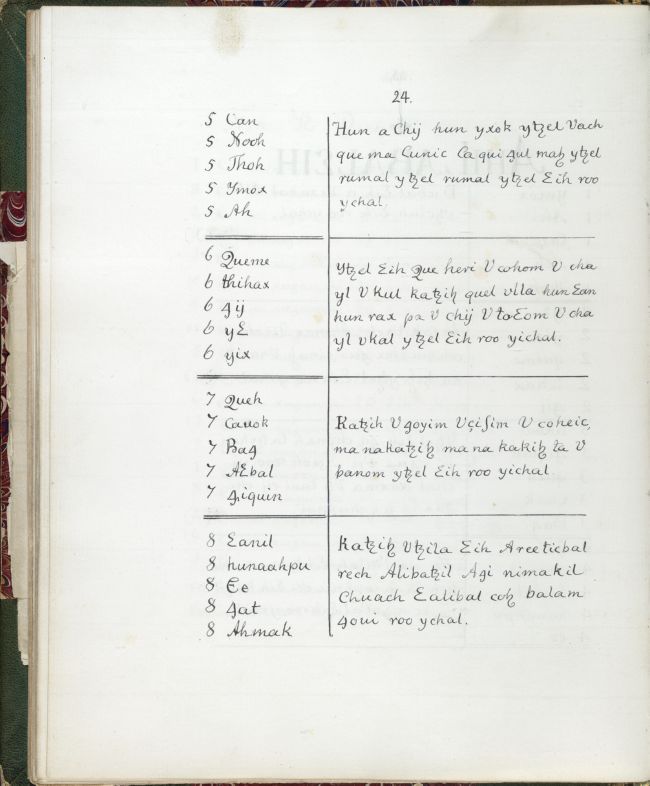 24.
5 Can
5 Nooh
5 Thoh
5 Ymox
5 Ah
Hun a Chij hun yxok ytꜫel Vach
que ma Cunic Ca qui ꜭul maꜧ ytꜫel
rumal ytꜫel rumal ytꜫel Ɛih roo
ychal.
6 Queme
6 thihax
6 ꜭij
6 yƐ
6 yix
Ytꜫel Ɛih Que heri V whom V cha
yl V Kul katꜫiꜧ quel vlla hun Ɛan
hun rax pa V chij V toƐom V cha
yl vkal ytꜫel Ɛih roo yichal.
7 Queh
7 Cauok
7 Baꜭ
7 AƐbal
7 ꜭiquin
Katꜫih V ꜭoyim Vçiſim V coheic,
ma nakatꜫiꜧ ma na kakiꜧ ta V
banom ytꜫel Ɛih roo yichal
8 Ɛanil
8 hunaahpu
8 Ee
8 ꜭat
8 Ahmak
Katꜫiꜧ Vtꜫila Ɛih Areeticbal
rech Alibatꜫil Aꜭi nimakil
Chuach Ɛalibal coꜧ balam
ꜭoui roo ychal.